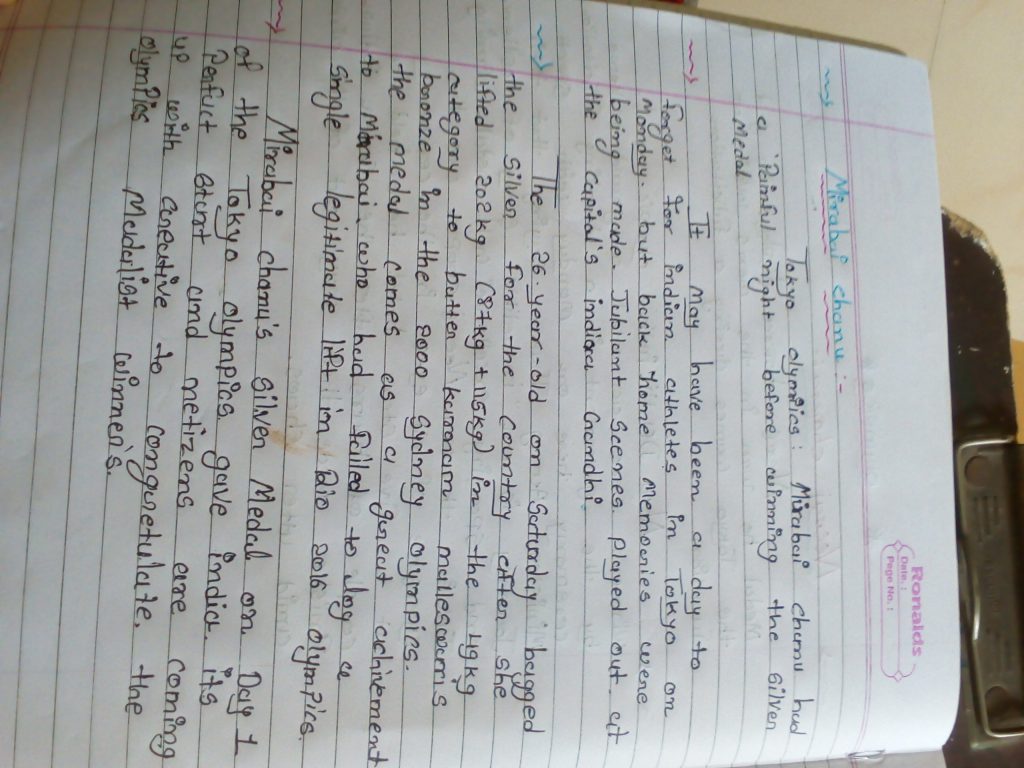 Ronalds
Date.:
Page No.:
Mirabai chanu :-
Tokyo olympics: Mirabai chanu had
a Painful night before winning the silver
Medal
It may have been a day to
forget for indian athletes in Tokyo on
Monday. but back home memories were
being made. Jubilant scenes played out at
the capital's indira Gandhi.
The 26-year-old on Saturday bagged
the silver for the country after she
lifted 202kg (87kg + 115kg) in the 49kg
category to better karnam malleswaris
bronze in the 2000 Sydney olympics.
the medal comes as a great achivement
to Mirabai. who had failed to log a
single legitimate lift in Rio 2016 olympics.
Mirabai chanu's silver Medal on Day 1
of the Tokyo olympics gave india its
Perfuct start and netizens are coming
up with creative to congratulate. the
olympics Medalist winner's.